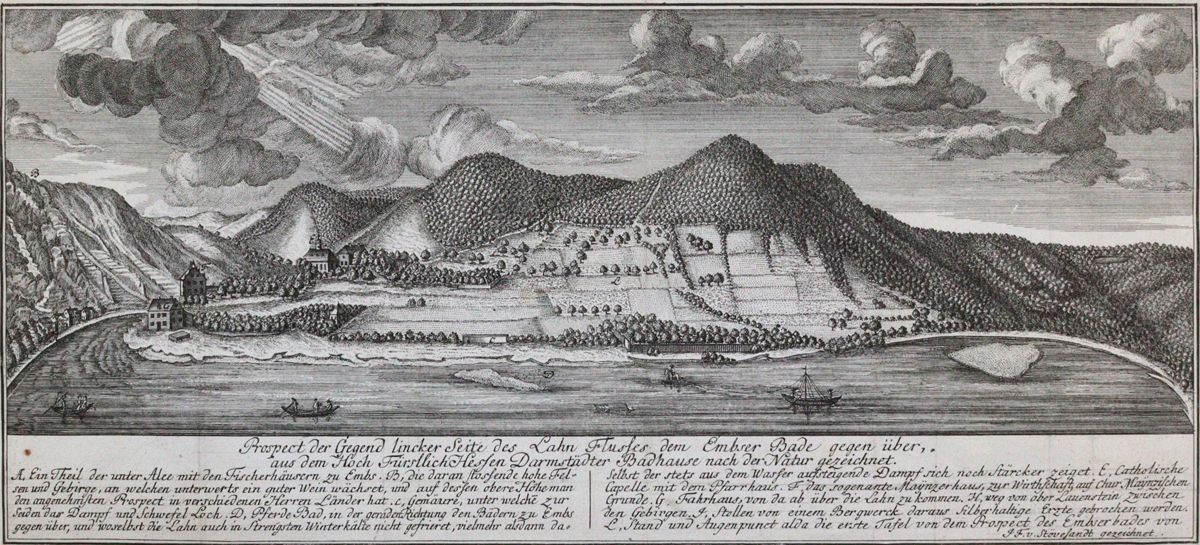 Prospect der Gegend lincker Seite des Lahn Flusses dem Embser Bade gegen über,
aus dem Hoch Fürstlich Hessen Darmstädter Badhause nach der Natur gezeichnet.
A, Ein Theil der unter Alee mit den Fischerhäusern zu Embs. B, die daran stosende hohe Fel-
sen und Gebirge, an welchen unterwerts ein guter Wein wächset, und auf dessen obere Höhe man
den angenemsten Prospect in verschiedenen Herren Länder hat, Gemäure, unter welche zur
Seiden das Dampf und Schwefel Loch. D, Pferde Bad, in der geraden Richtung den Bädern zu Embs
gegen über, und woselbst die Lahn auch in Strengsten Winterkälte nicht gefrieret, vielmehr alsdann da-
Selbst der stets aus dem Wasser aufsteigende Dampf sich noch Stärcker zeiget. E, Catholische
Capelle mit dem Pfarrhaus. F, das sogenante Maynzerhaus, zur Wirthschaft auf Chur Maynzischen
Grunde, G, Fahrhaus, von da ab über die Lahn zu kommen. H, weg von ober Lauenstein zwischen
den Gebirgen. J, Stollen von einem Bergwerck daraus Silberhaltige Erzte gebrochen werden.
L, Stand und Augenpunct alda die erste Tafel von dem Prospect des Embserbades von
J F. v. Stovesandt gezeichnet.
B
L